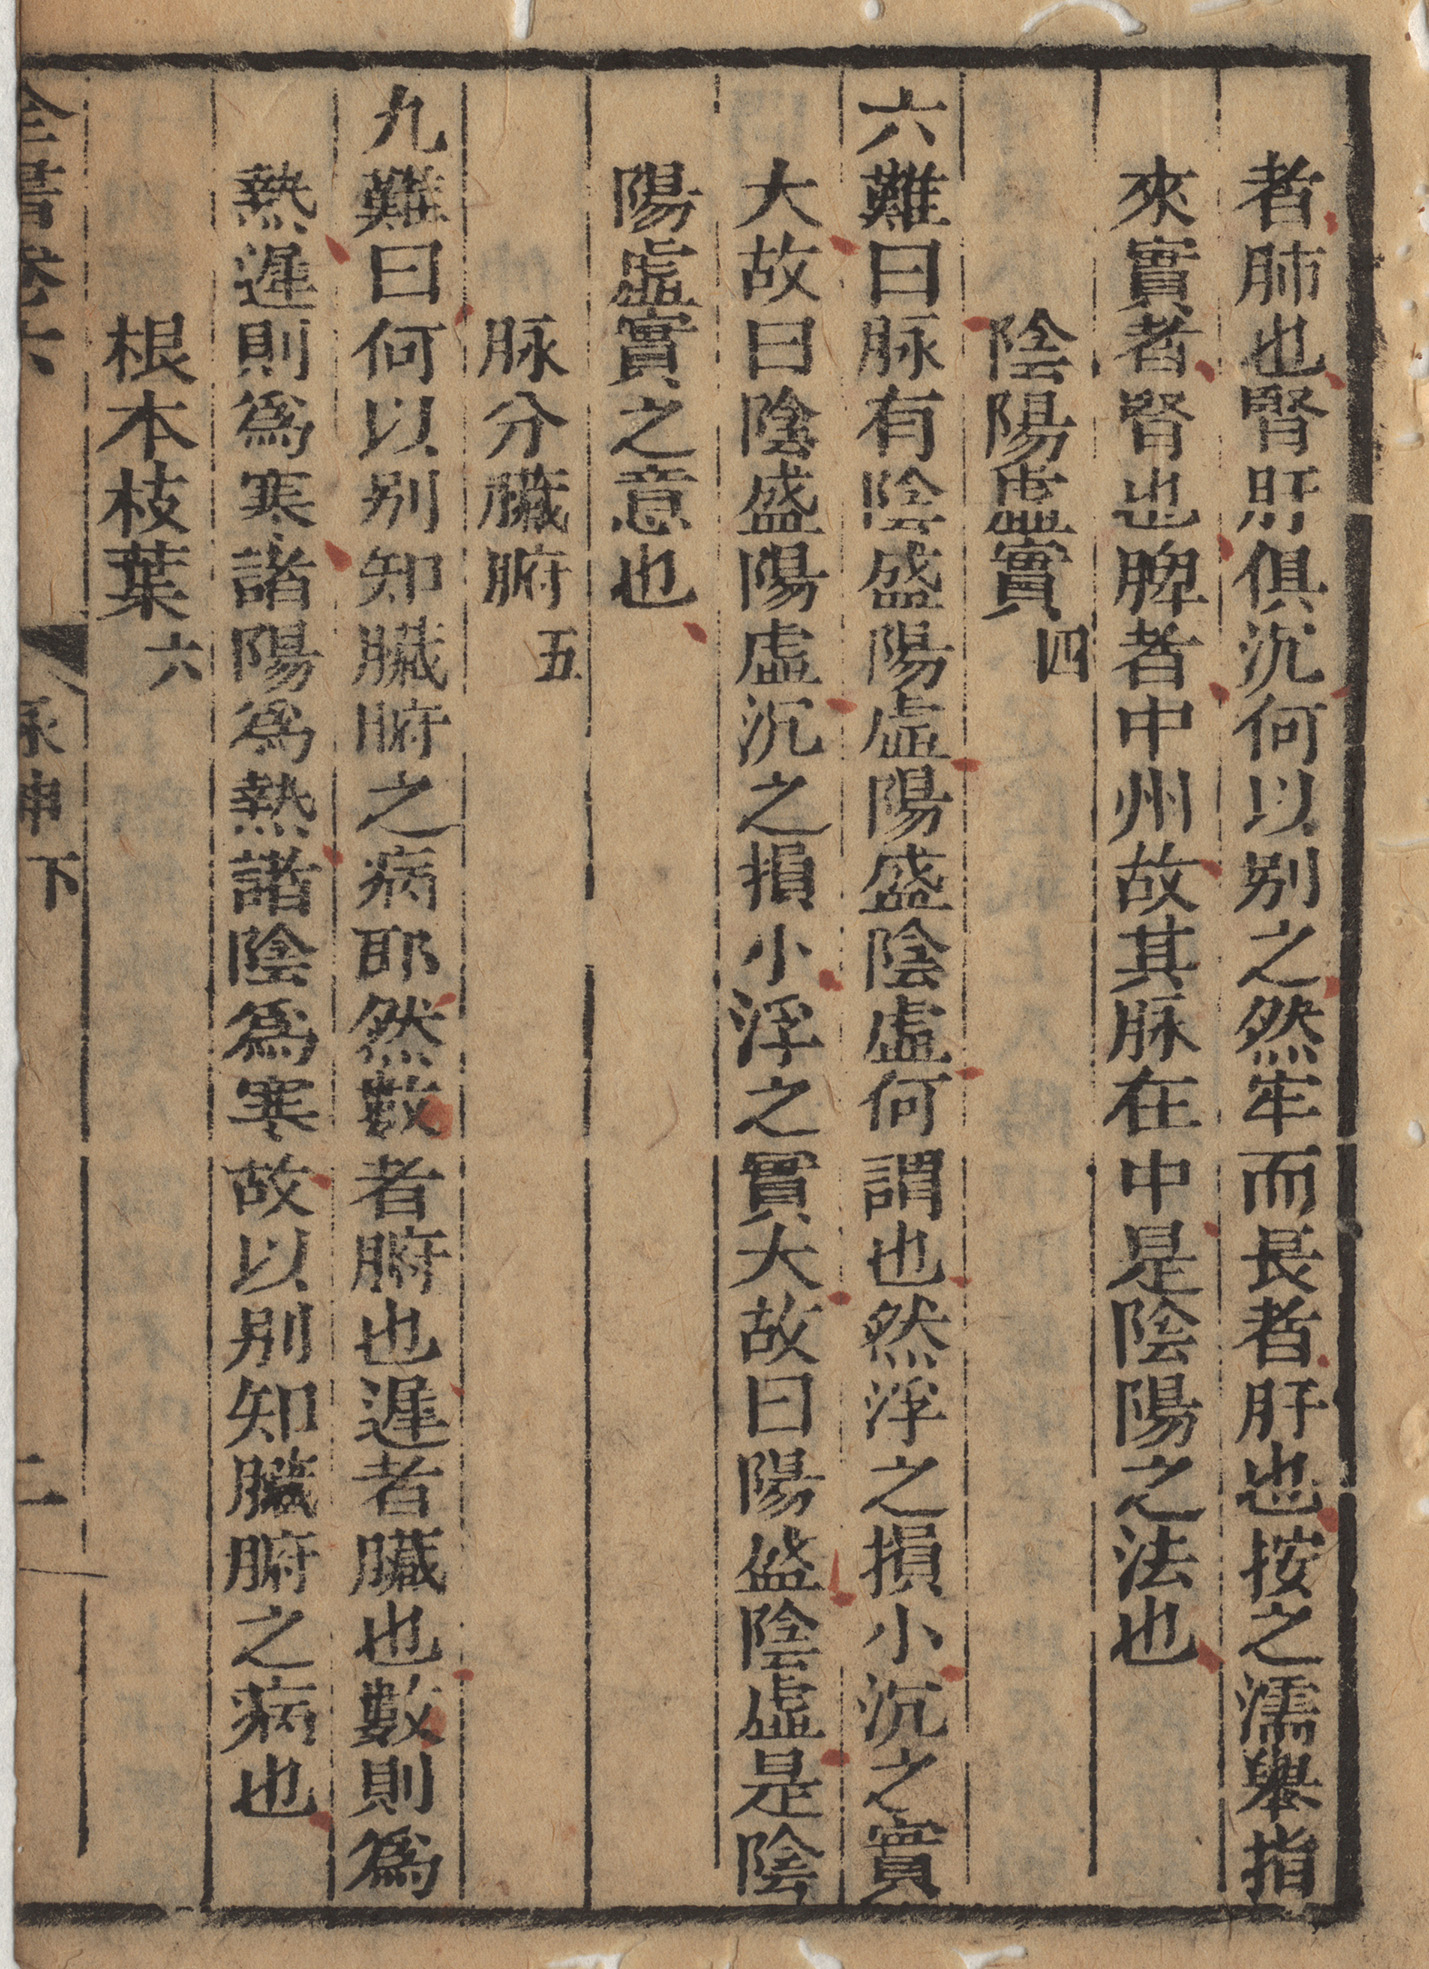 者肺也腎肝俱沉何以别之然牢而長者肝也按之濡舉指
來實者腎也脾者中州故其脉在中是陰陽之法也
陰陽虛實四
六難曰脉有陰盛陽虛陽盛陰虛何謂也然浮之損小沉之實
大故曰陰盛陽虛沉之損小浮之實大故曰陽盛陰虛是陰
陽虛實之意也
脉分臟腑五
九難曰何以别知臟腑之病耶然數者腑也遲者臟也數則爲
熱遲則爲寒諸陽爲熱諸陰爲寒故以别知臟腑之病也
根本枝葉六
全書卷六 脉神下 二